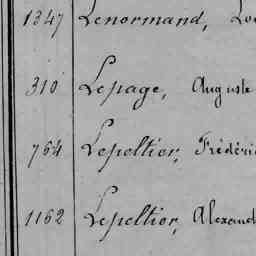 1347 Lenormand,
310 Lepage, Auguste
764 Lepeltier, Frédéric
1162 Lepeltier, Alexand